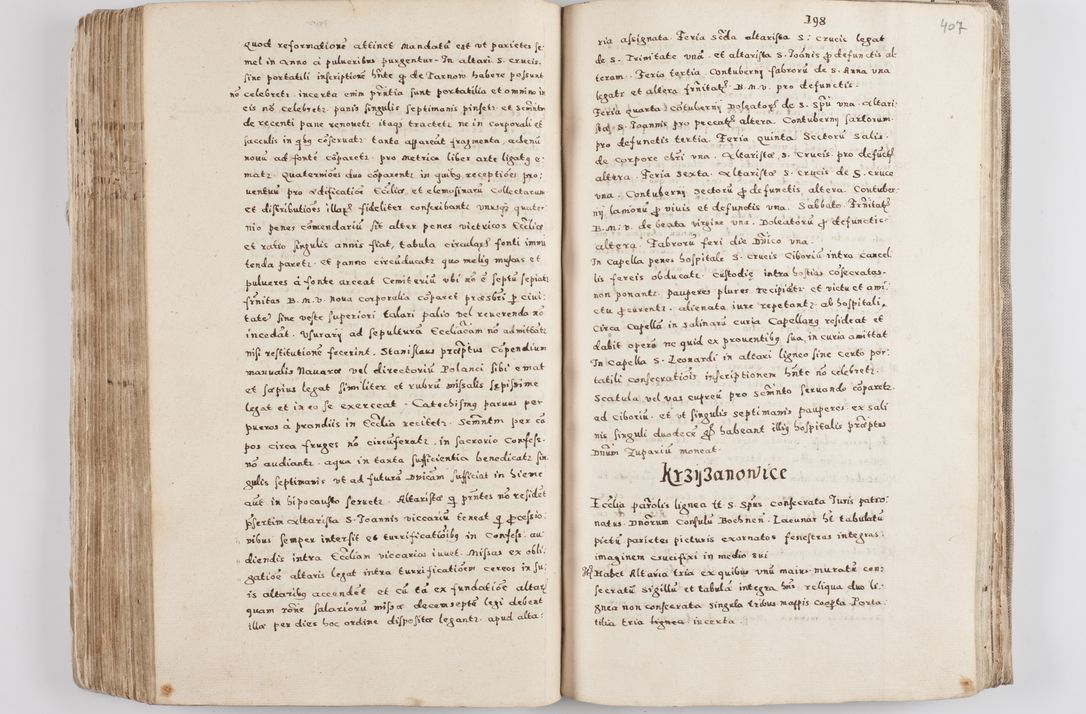 quod reformationē attinet Mandatū est vt parietes se-
mel in Anno a pulueribus purgentur. In altari S. Crucis.
sine portatili inscriptionē hñte ꝙ de Tarnow habere possunt
nō celebretꝛ. incerta enim prñtia sunt portatilia et omnino in
eis nō celebretꝛ. panis singulis septimanis pinsetꝛ. et Scrñtm
de recenti pane renouetꝛ. itaqꝫ tractetꝛ ne in corporali et
sacculis in qbꝯ cōseruatꝛ. tanta appareat fragmenta,
nouū ad fontē cōparetꝛ. pro Metrica liber arte ligatꝯ e-
matꝛ. Quaterniōes duo cōparentꝛ in quibꝯ receptiōes pro-
uentuū pro ædificatiōe Eccliæ et elemosinarū collectarum
et distributiōes illarꝫ fideliter conscribantꝛ vnusqꝫ quater-
nio penes cōmendariū sit alter penes victricos Eccliæ
et ratio singulis annis fiat, tabula circularꝫ fonti
tenda paretꝛ. et panno circūducatꝛ quo meliꝯ muscas et
pulueres á fonte arceat Cemiteriū vbi nō ē septū sepiatꝛ
frñitas B. M. V. Noua corporalia cōparet præsbri ꝑ ciui-
tatē sine veste superiori talari palio vel reuerenda nō
incedāt. Vsurarij ad sepulturā Ecclāčam nō admittātꝛ
nisi restitutionē fecerint. Stanislaus præptus Cōpendium
manualis Nauaræ vel directoriū Polanci sibi emat
et sæpius legat similiter et rubrū missalis sæpissime
legat et in eo se exerceat. Catechismꝯ paruus per
pueros á prandiis in Ecclia recitetꝛ. Scrmñtm per cō
pos circa fruges nō circūferatꝛ. in sacrario Confess.
nō audiantꝛ. aqua in tanta sufficientia benedicatꝛ sin-
gulis septimanis vt ad futurā Dnicam sufficiat in hieme
aūt in hipocausto seruetꝛ. Altaristæ ꝗ prñtes nō residēt
ꝑsertim altarista S. Joannis viccariū teneat ꝗ ꝓcessio-
nibus semper intersit et turrificatioībꝯ in Confess. au-
diendis intra Ecclian viccarios iuuet. Missas ex obli-
gatiōe altaris legat intra turrificatioēm cereos in su-
is altaribꝯ accendēt et cū tā ex fundatiōe altarꝫ
quam rōne salariorū missæ decemseptē legi debent
illæ per dies hoc ordine dispositæ legantꝛ. apud alta-

198
407
ria assignata. Feria Scda altarista S. Crucis legat
de S. Trinitate vnā. et altarista S. Joānis ꝑ defunctis al-
teram. Feria tertia Contubernij fabrorū de S. Anna vna
legatꝛ et altera frñitatꝫ B. M. V. pro defunctis.
Feria quarta cōtubernij Doleatorꝫ de S. Spu vna. altari-
stæ S. Joannis pro peccatꝫ altera. Contubernij sartorum
pro defunctis tertia. Feria Quinta Sectorū Salis.
de corpore chri vna. Altaristæ S. Crucis pro defūctꝫ
altera. Feria Sexta. Altaristæ S. Crucis de S. Cruce
vna. Contubernij Sectorū ꝑ defunctis, altera. Contuber-
nij laniorū ꝑ viuis et defunctis vna. Sabbato. Frñitatꝫ
B. M. V. de beata virgine vna. Doleatorū ꝑ defunctis
altera. Fabrorū feri die Dnico vna.
In Capella penes hospitale S. Crucis Ciboriū intra Cancel-
lis fereis obducatꝛ. Custodiæ intra hostias cōsecratas
non ponantꝛ. pauperes plures recipiātꝛ et victu et ami-
ctu ꝓcurentꝛ. alienata iure repetantꝛ. ab hospitali.
Circa Capellā in Salinarū curia Capellanꝯ resideat et
dabit operā ne quid ex prouentibꝯ sua in curia amittat
In Capella S. Leonardi in altari ligneo sine certo por-
tatili consecratiois inscriptionem hñte nō celebretꝛ.
Scatula vel vas cupreū pro scrñnto seruando cōparetꝛ
ad Ciboriū. et vt singulis septimanis pauperes ex sali
nis singuli duodecē ꝗf habeant illiꝯ hospitalis præptus
Dnum Zupariū moneat.
Krzyzanowice
Ecclia parōlis lignea tt S. Spus consecrata Juris patro-
natus Dnorum Consulū Bochneñ. Lacunar ht tabulatū
pictū parietes picturis exornatos fenestras integras.
imaginem Crucifixi in medio sui
Habet Altaria tria ex quibus vnū maius muratū con-
secratū sigillū et tabulā integra hñs reliqua duo li-
gnea non consecrata singula tribus mappis coopta Porta-
tilia tria lignea incerta.